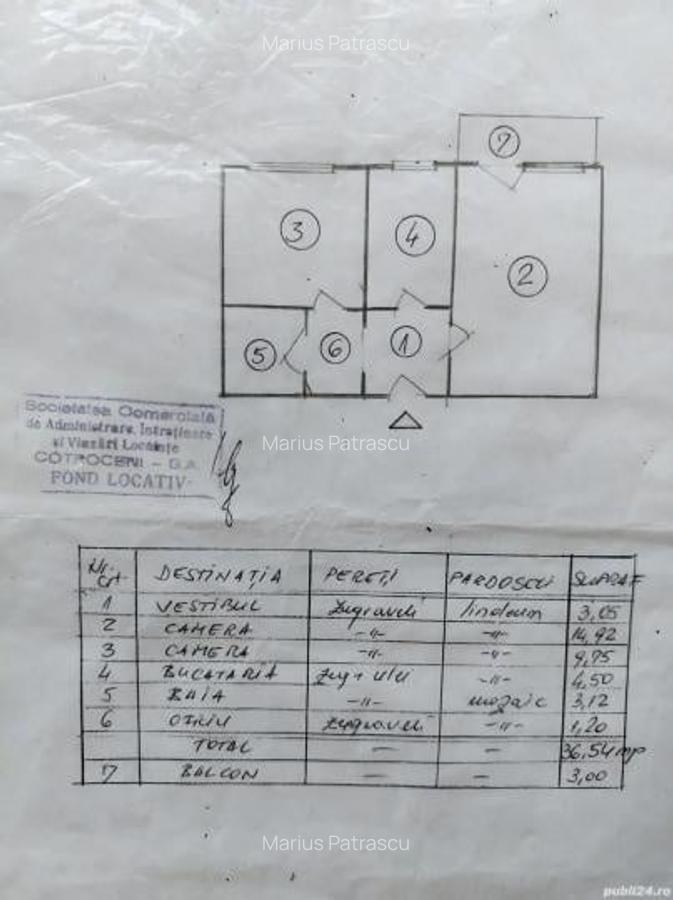 Marius Patrascu
7
3
4
2
5
6
1
Societatea Comercială
de Administrare, Intreținere
și Vînzări Locuințe
COTROCENI - S.A.
FOND LOCATIV
Marius Patrascu
Nr. crt. DESTINAȚIA PEREȚI PARDOSELI SUPRAF
1 VESTIBUL Zugraveli linoleum 3,05
2 CAMERA -"- -"- 14,92
3 CAMERA -"- -"- 9,75
4 BUCATARIA Zugr+ulei -"- 4,50
5 BAIA -"- mozaic 3,12
6 OFICIU Zugraveli -"- 1,20
TOTAL - - 36,54 mp
7 BALCON - - 3,00
Marius Patrascu
publi24.ro